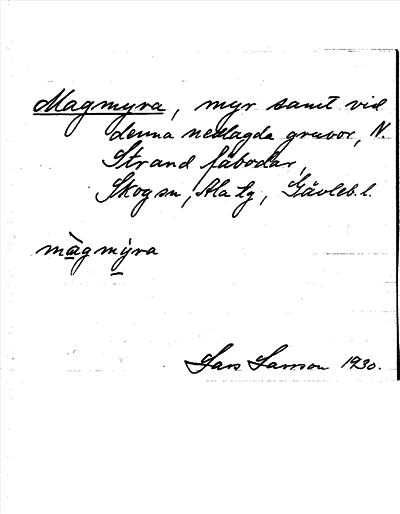 Magmyra, myr samt vid
denna nedlagda gruvor, N.
Strand fäbodar,
Skog sn, Ala tg, Gävleb. l.
màgmýra
Lars Larsson 1930.